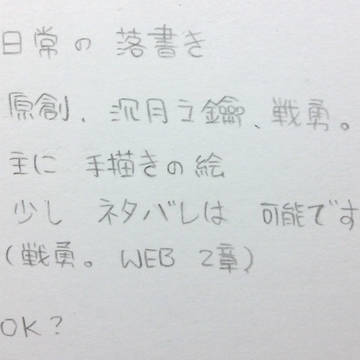 日常の 落書き
原創、沉月之鑰、戦勇。
主に 手描きの絵
少し ネタバレは 可能です
(戦勇。 WEB 2章)
OK?